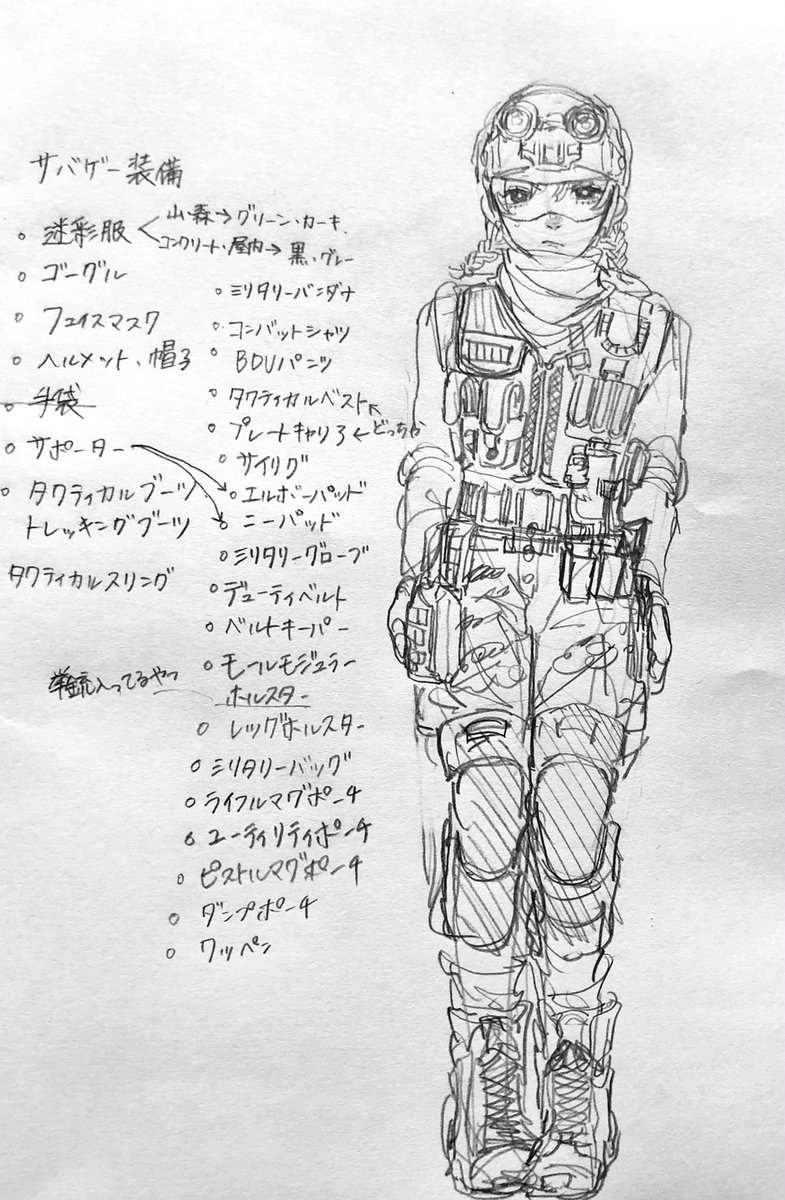 サバゲー装備
迷彩服
山・森→グリーン・カーキ、
コンクリート・屋内→黒・グレー
ゴーグル
フェイスマスク
ヘルメット、帽子
手袋
サポーター
タクティカルブーツ
トレッキングブーツ
タクティカルスリング
ミリタリーバンダナ
コンバットシャツ
BDUパンツ
タクティカルベスト↖
プレートキャリア←どっちか
サイリグ
エルボーパッド
ニーパッド
ミリタリーグローブ
デューティベルト
ベルトキーパー
モールモジュラー
ホルスター
拳銃入ってるやつ
レッグホルスター
ミリタリーバッグ
ライフルマグポーチ
ユーティリティポーチ
ピストルマグポーチ
ダンプポーチ
ワッペン